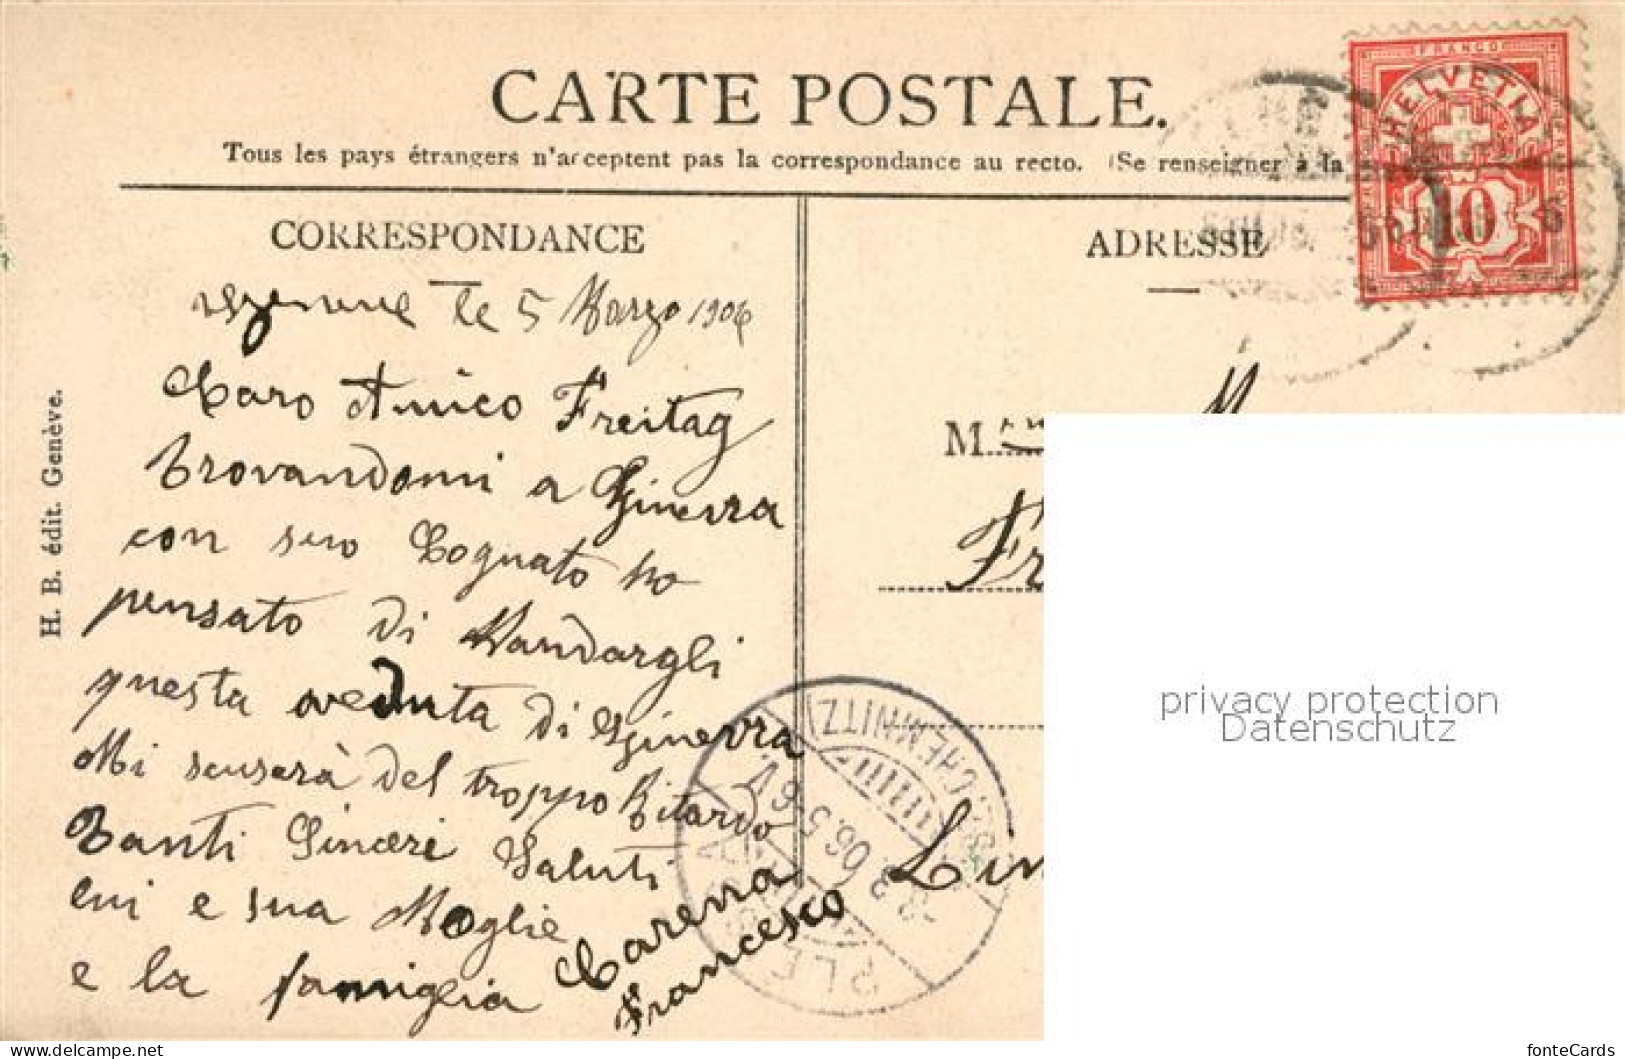 CARTE POSTALE.
Tous les pays étrangers n'acceptent pas la correspondance au recto. (Se renseigner à la
FRANCO
HELVETIA
10
CORRESPONDANCE
ADRESSE
le 5 Marzo 1906
Caro Amico Freitag
Trovandomi a Ginevra
con suo Cognato ho
pensato di Mandargli
questa veduta di Ginevra
Mi scuserà del troppo Ritardo
Tanti Sinceri Saluti
Lui e sua Moglie
e la famiglia
Carerra
Francesco
H. B. édit. Genève.
M
Fr
Lin
CHEMNITZ
8.3.06.5-6V
privacy protection
Datenschutz
www.delcampe.net
fonteCards